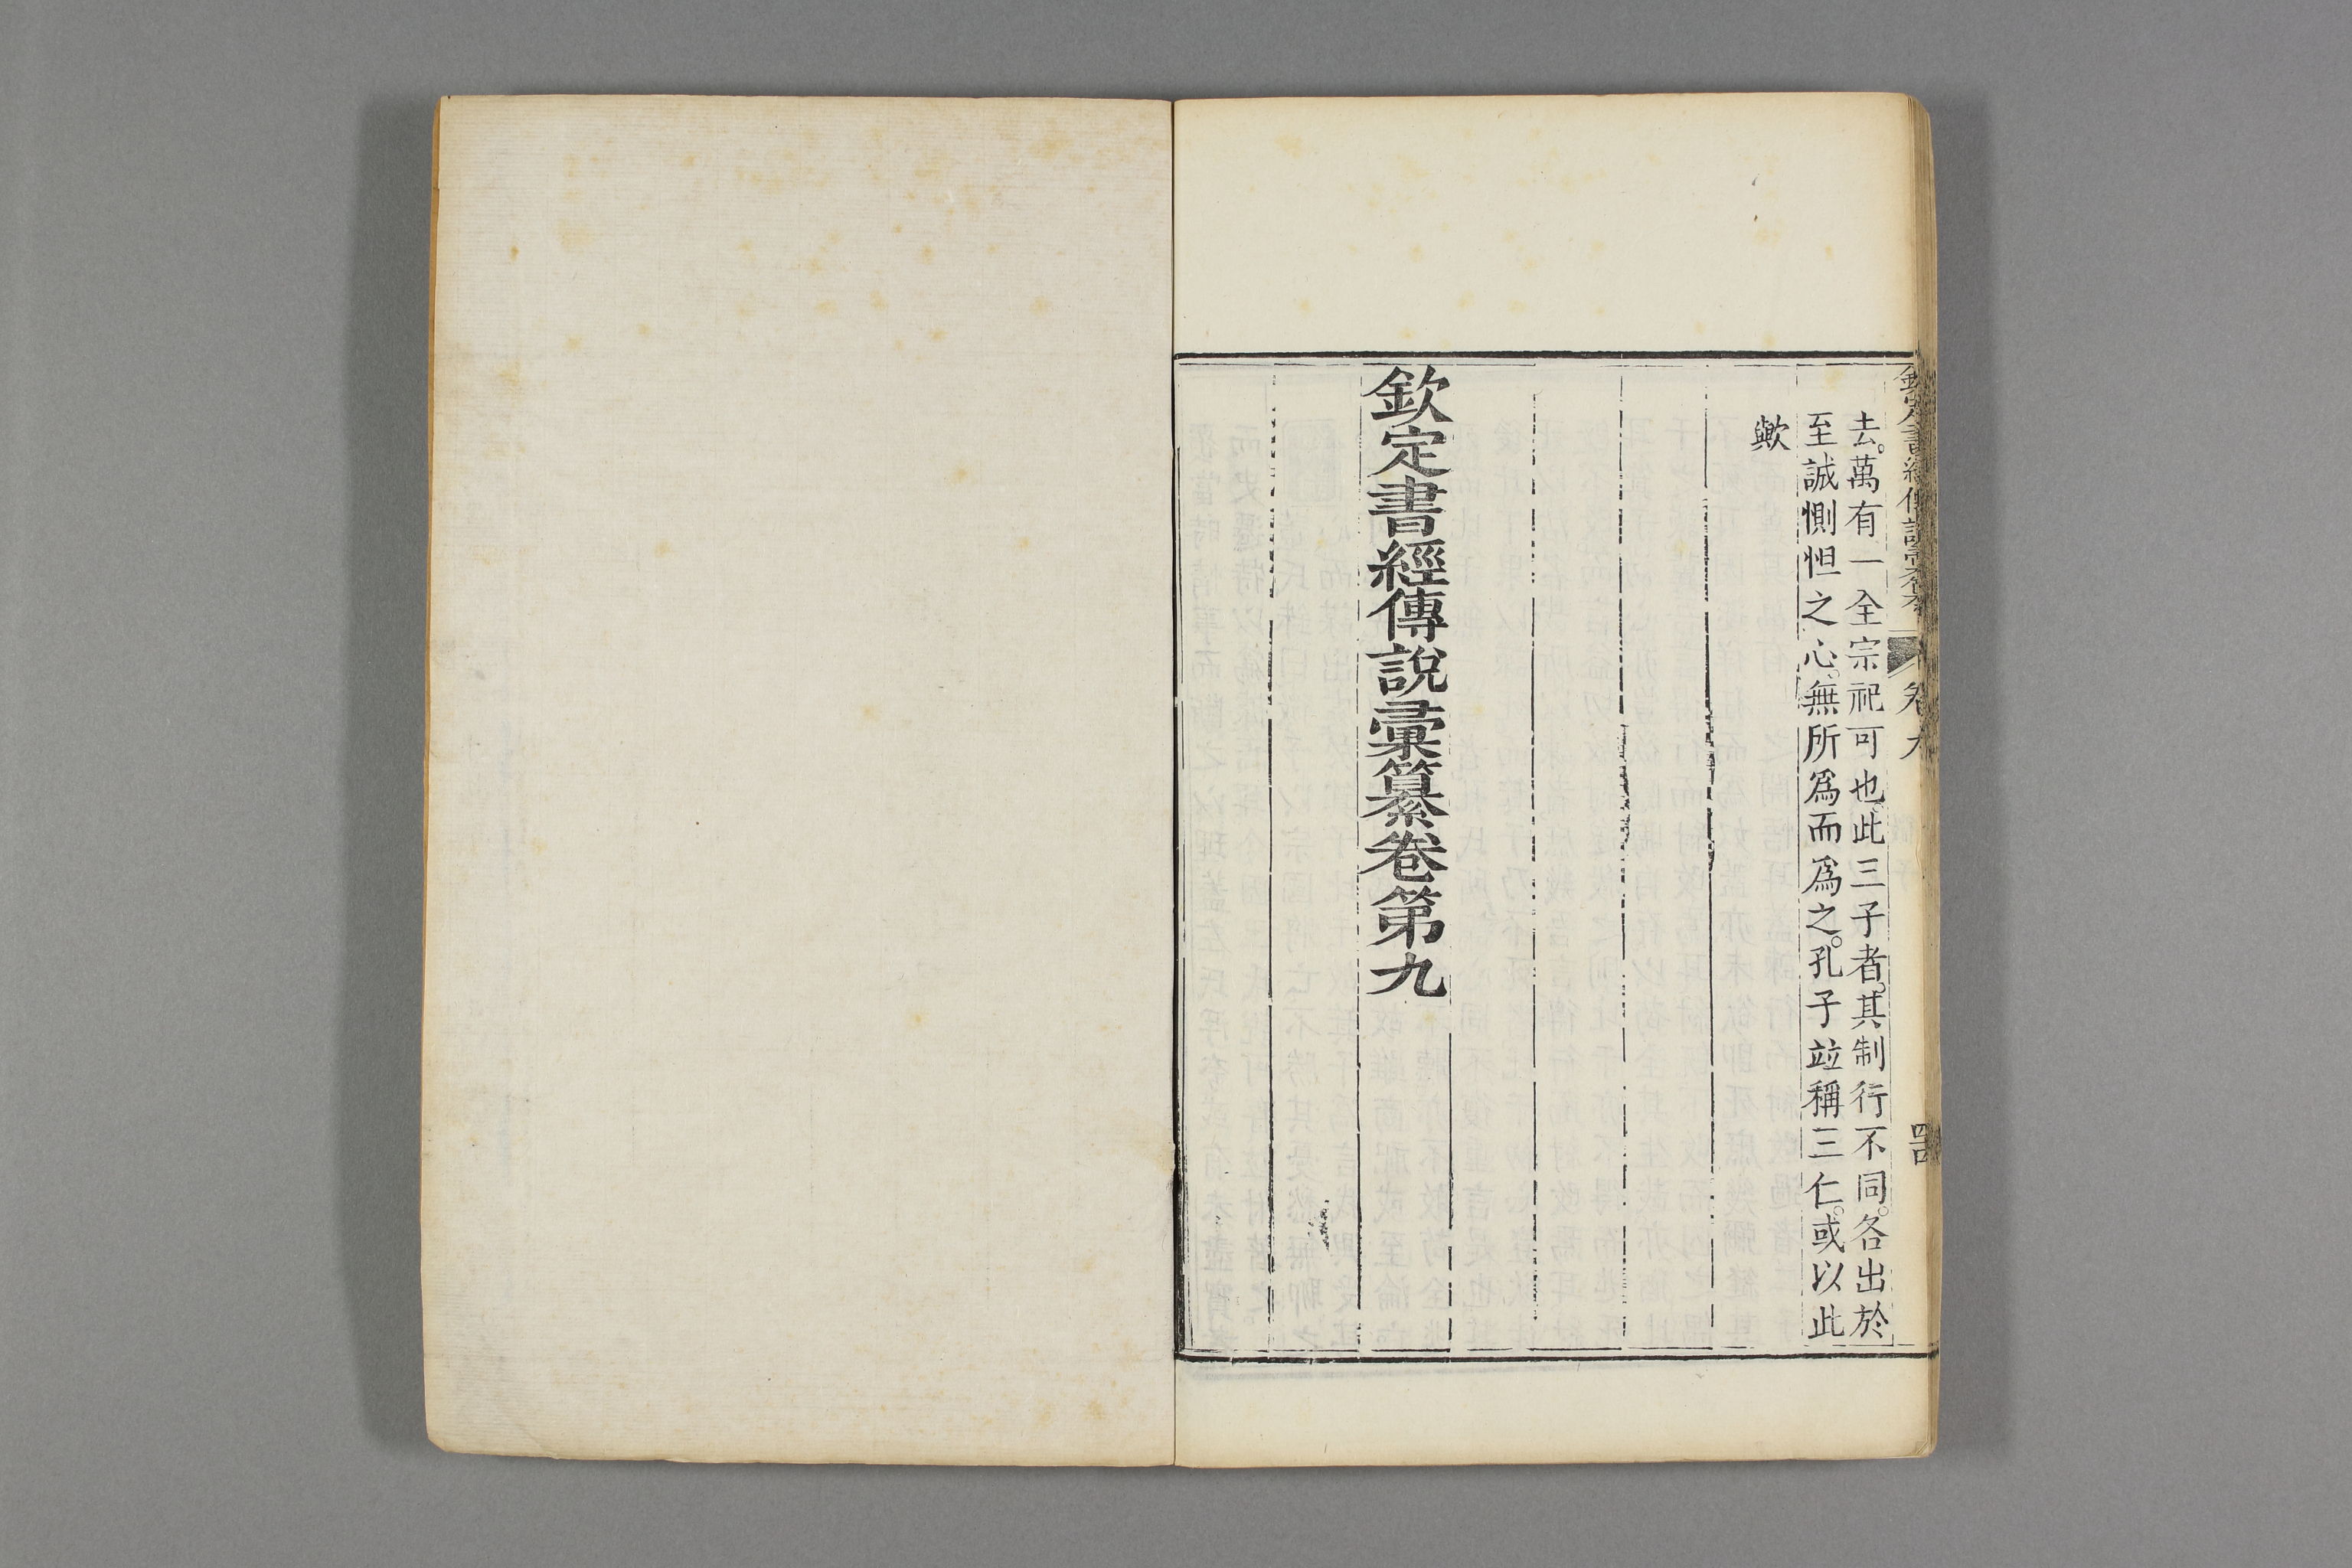 欽定書經傳說彙纂 卷九
去。萬有一全宗祀可也。此三子者。其制行不同。各出於
至誠惻怛之心。無所爲而爲之。孔子竝稱三仁。或以此
歟
欽定書經傳說彙纂卷第九